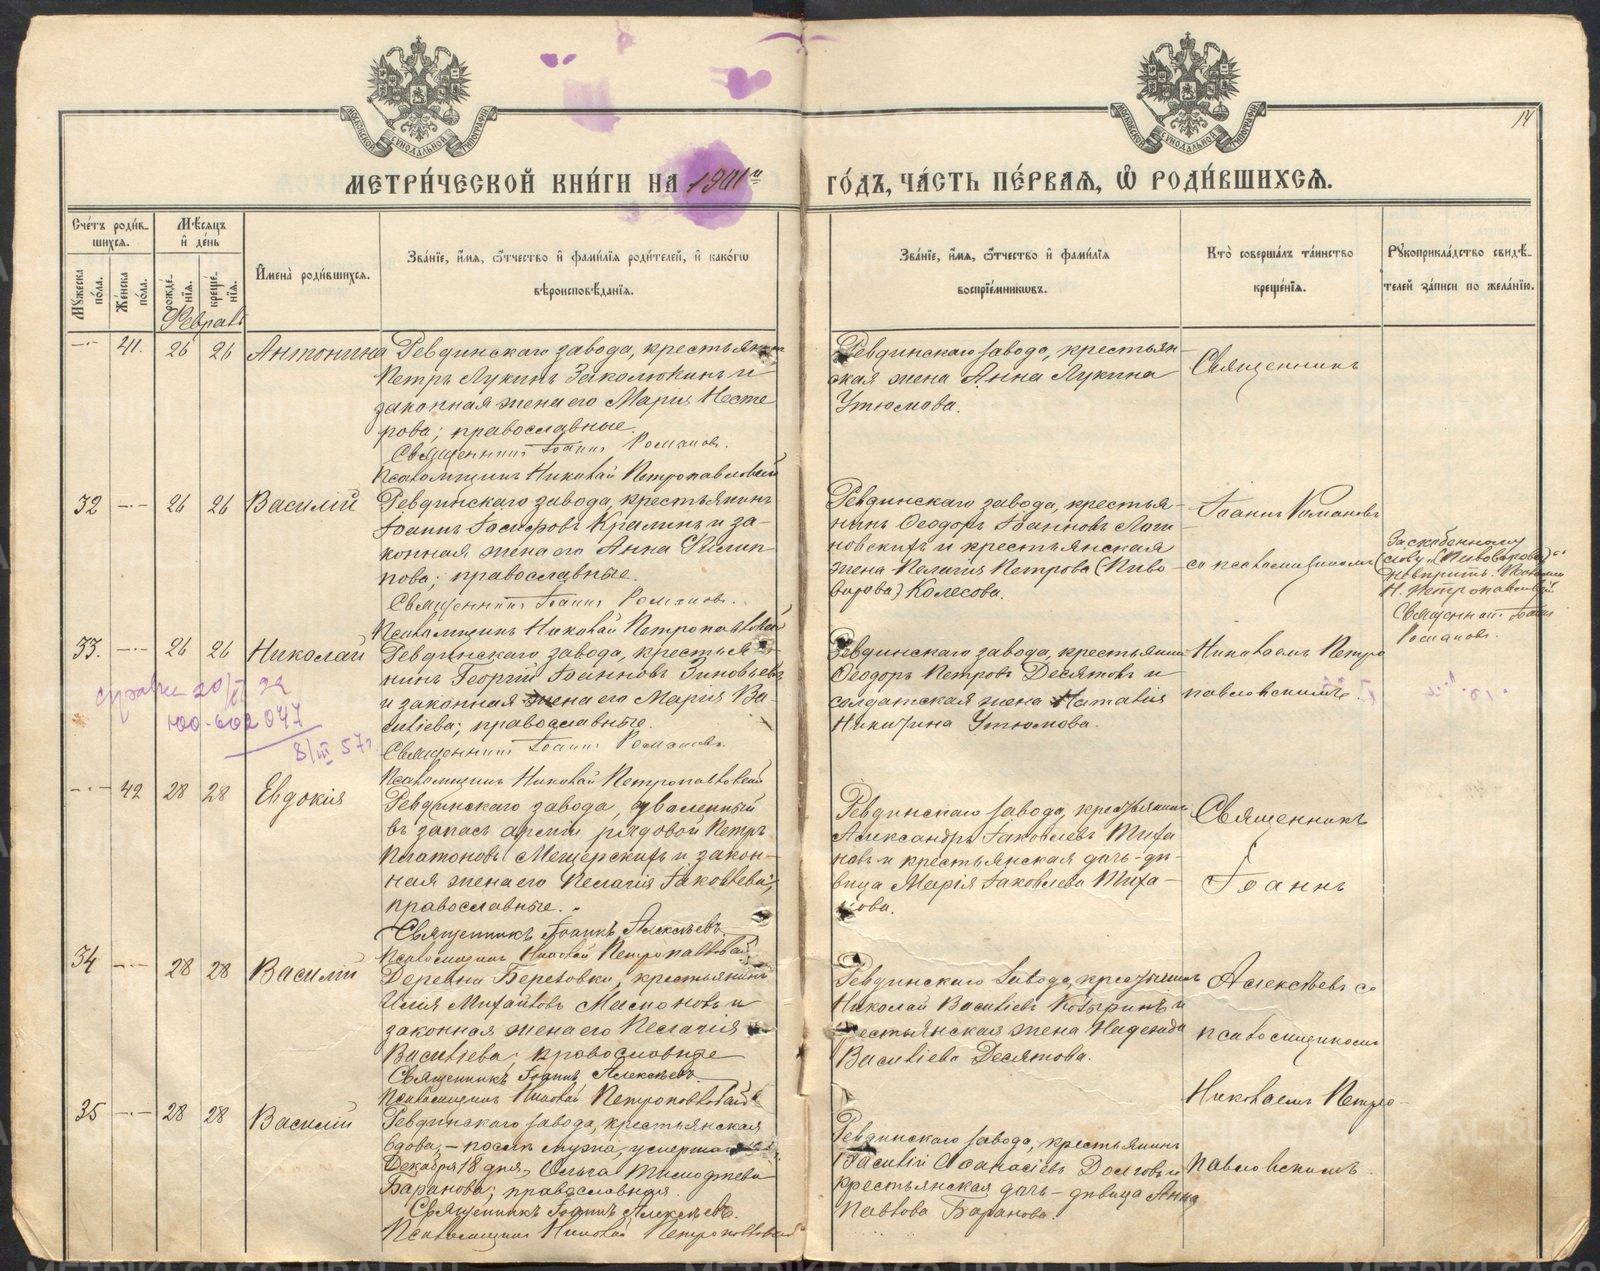 МОСКОВСКОЙ СѴНОДАЛЬНОЙ ТИПОГРАФІИ
МОСКОВСКОЙ СѴНОДАЛЬНОЙ ТИПОГРАФІИ
14
МЕТРИ́ЧЕСКОЙ КНИ́ГИ НА 1901й ГО́ДЪ, ЧА́СТЬ ПЕ́РВАЯ, Ѡ РОДИ́ВШИХСЯ.
Сче́тъ роди́в-
шихся.
Мꙋ́жеска по́ла.
Же́нска по́ла.
Мѣ́сяцъ
и де́нь
рожде́-нїя.
креще́-нїя.
И҆мена̀ роди́вшихся.
Зва́нїе, и҆́мя, ѻ҆́тчество и҆ фами́лїя роди́телей, и҆ како́гѡ
вѣроисповѣ́данїя.
Зва́нїе, и҆́мя, ѻ҆́тчество и҆ фами́лїя
воспрїе́мниковъ.
Кто̀ соверша́лъ та́инство
креще́нїя.
Рꙋкоприкла́дство свидѣ́-
телей за́писи по жела́нїю.
Февраль
— 41. 26 26 Антонина
Ревдинскаго завода, крестьянин
Петръ Лукинъ Заколюкинъ и
законная жена его Марія Несте
рова; православные.
Священникъ Іоаннъ Романовъ.
Псаломщикъ Николай Петропавловскій
Ревдинскаго завода, крестьян-
ская жена Анна Лукина
Утюмова.
Священникъ
32 — 26 26 Василій
Ревдинскаго завода, крестьянинъ
Іоаннъ Іосифовъ Кралинъ и за-
конная жена его Анна Филип
пова; православные.
Священникъ Іоаннъ Романовъ.
Псаломщикъ Николай Петропавловскій
Ревдинскаго завода, крестья-
нинъ Ѳеодоръ Іоанновъ Логи
новскихъ и крестьянская
жена Пелагія Петрова (Пиво
варова) Колесова.
Іоаннъ Романовъ
съ псаломщикомъ
За скобенному
слову „(Пивоварова)“
Н. Петропавловскій
Священникъ Іоаннъ
Романовъ.
33. — 26 26 Николай
Ревдинскаго завода, крестья
нинъ Георгій Іоанновъ Зиновьевъ
и законная жена его Марія Ва-
сильева; православные.
Священникъ Іоаннъ Романовъ.
Псаломщикъ Николай Петропавловскій
Ревдинскаго завода, крестьянинъ
Ѳеодоръ Петровъ Десятовъ и
солдатская жена Наталія
Никитина Утюмова.
Николаемъ Петро
павловскимъ.
справка 20/VI 92
ЮО-602 047
8/III 57г.
— 42 28 28 Евдокія
Ревдинскаго завода, уволенный
въ запасъ арміи рядовой Петръ
Платоновъ Мещерскихъ и закон-
ная жена его Пелагія Іаковлева;
православные.
Священникъ Іоаннъ Алексѣевъ.
Псаломщикъ Николай Петропавловскій
Ревдинскаго завода, крестьянинъ
Александръ Іаковлевъ Тиха
новъ и крестьянская дочь-дѣ-
вица Марія Іаковлева Тиха-
нова.
Священникъ
Іоаннъ
34 — 28 28 Василій
Деревни Березовки, крестьянинъ
Илія Михайловъ Масюновъ и
законная жена его Пелагія
Васильева; православные
Священникъ Іоаннъ Алексѣевъ
Псаломщикъ Николай Петропавловскій
Ревдинскаго завода, крестьянинъ
Николай Васильевъ Козыринъ и
крестьянская жена Надежда
Васильева Десятова.
Алексѣевъ съ
псаломщикомъ
Николаемъ Петро-
35 — 28 28 Василій
Ревдинскаго завода, крестьянская
вдова, — послѣ мужа, умершаго
Декабря 18 дня, Ольга Тимоѳеева
Баранова; православная.
Священникъ Іоаннъ Алексѣевъ.
Псаломщикъ Николай Петропавловскій
Ревдинскаго завода, крестьянинъ
Василій Аѳанасіевъ Долговъ и
крестьянская дочь-дѣвица Анна
Павлова Баранова.
павловскимъ.